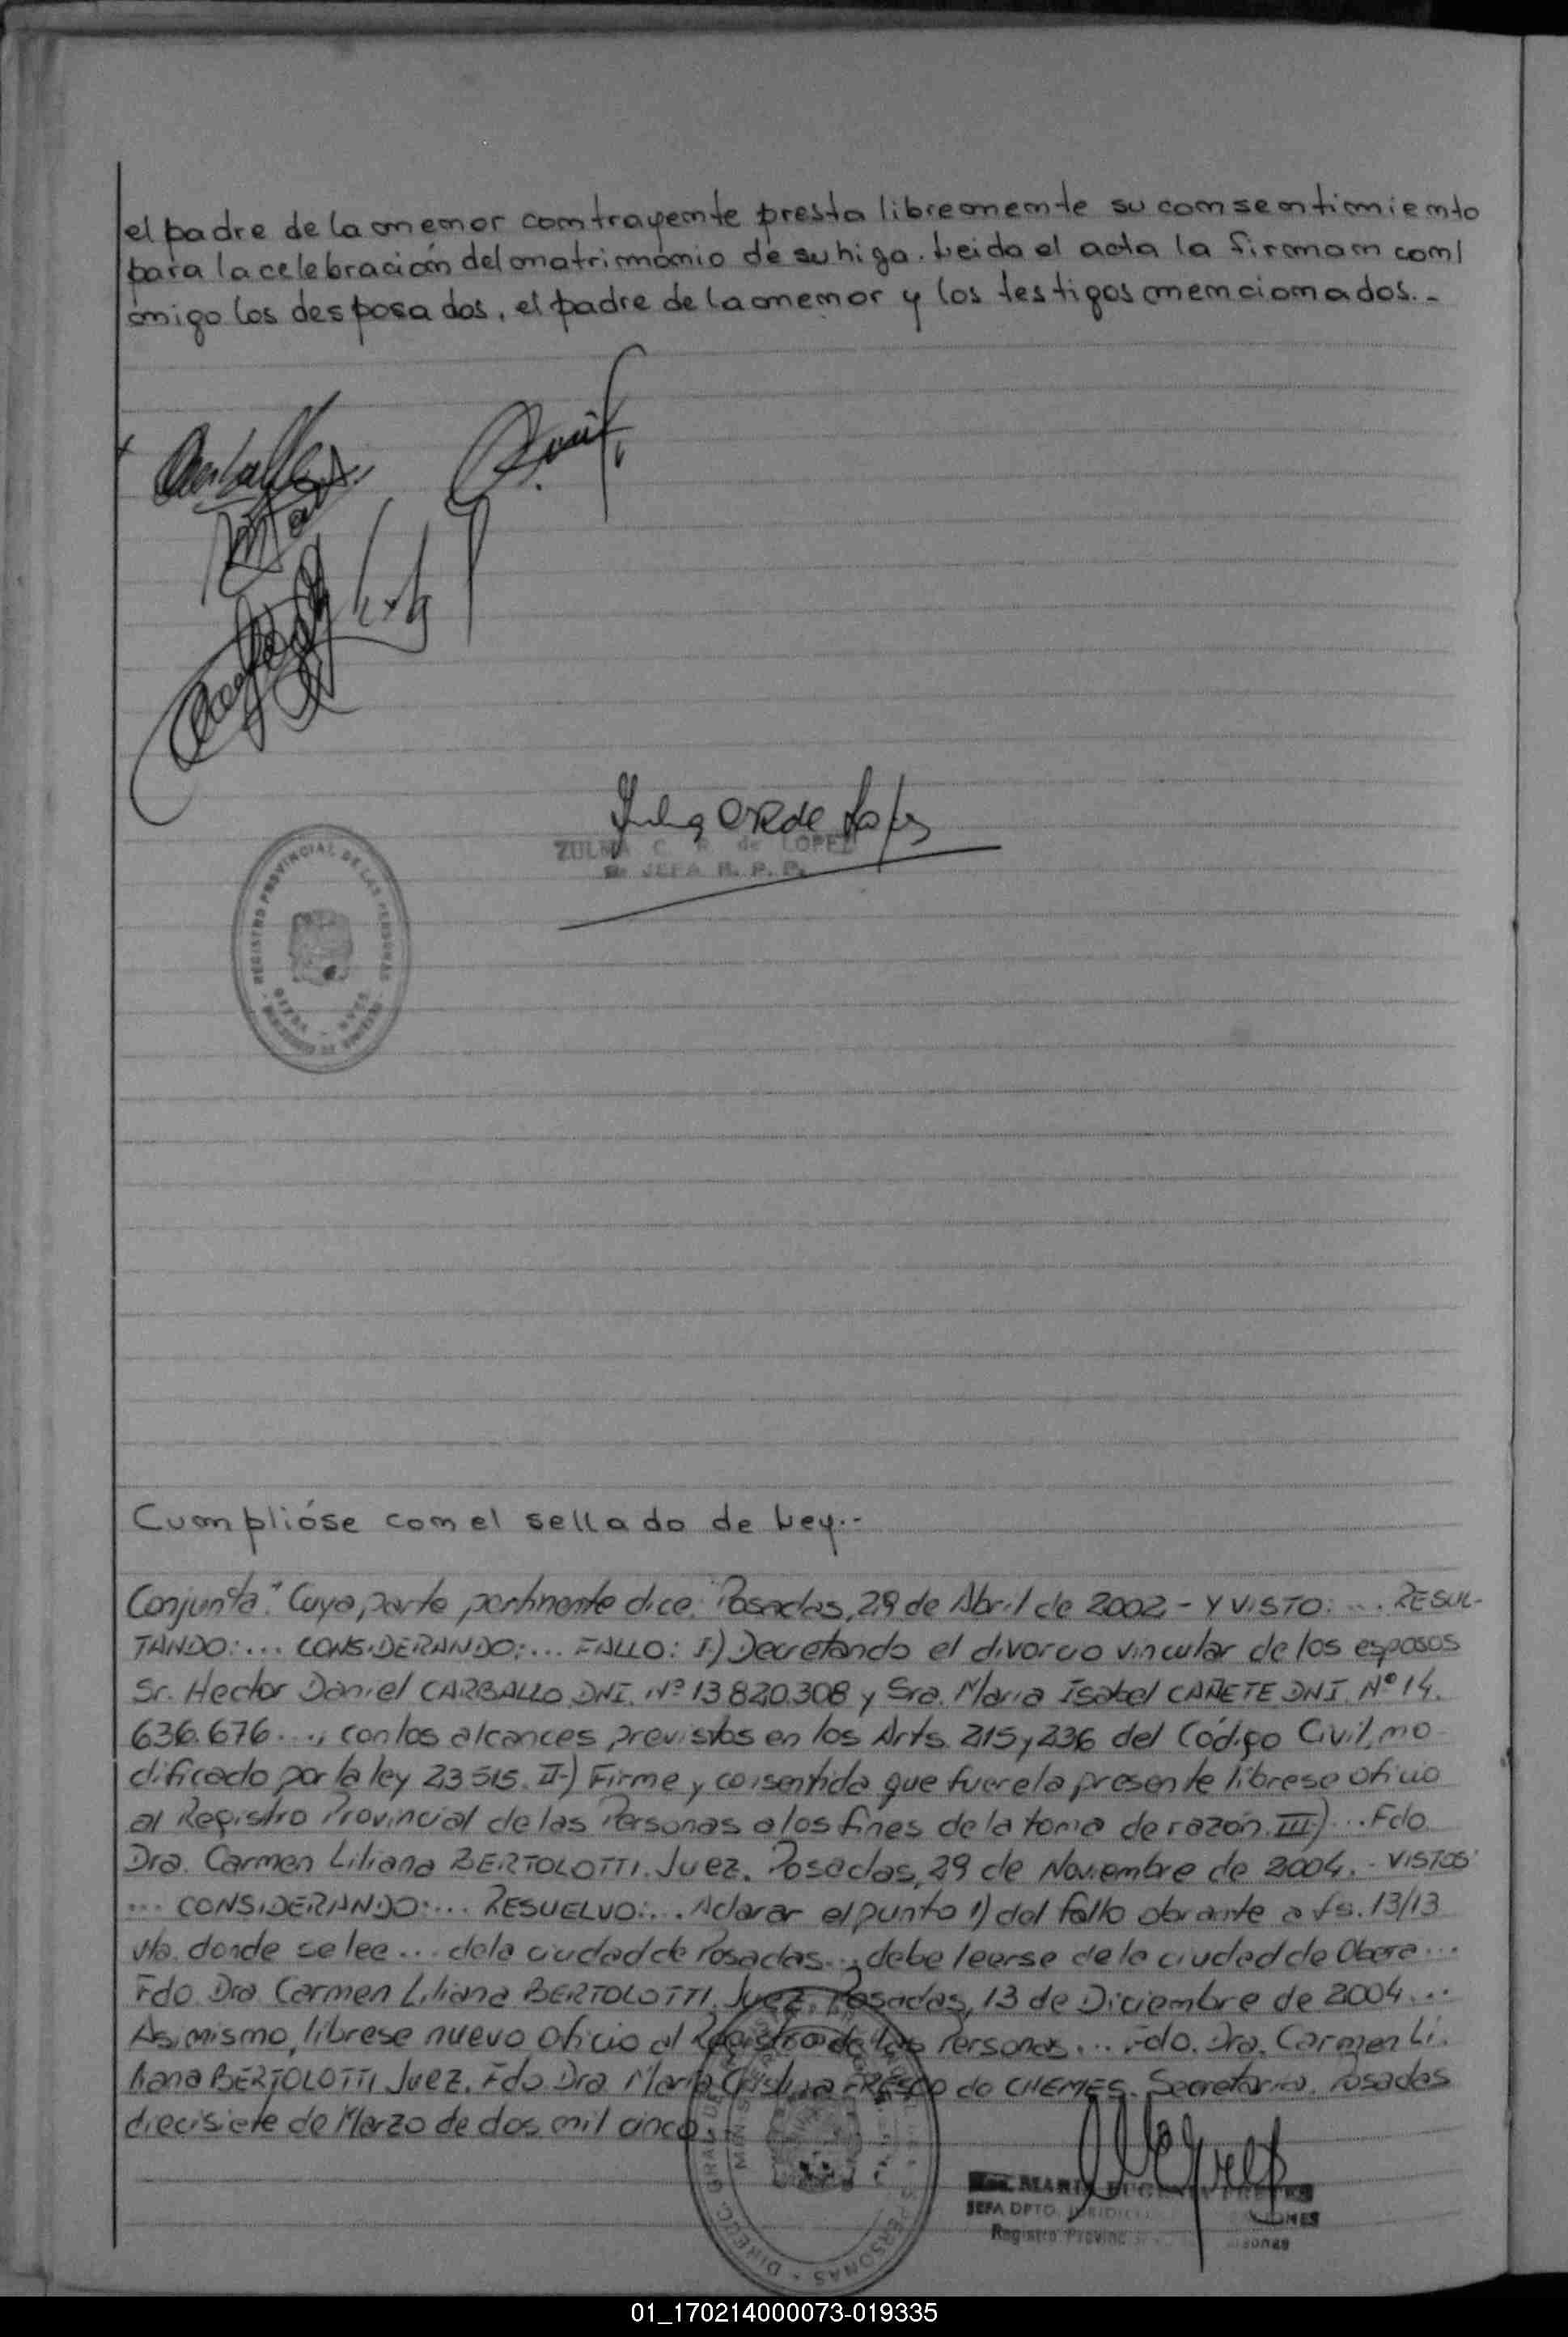 el padre de la menor contrayente presta libremente su consentimiento
para la celebración del matrimonio de su higa. Leida el acta la firman con/
migo los desposados, el padre de la menor y los testigos mencionados.-
ZULMA C. R. de LOPEZ
JEFA R. P. P.
REGISTRO PROVINCIAL DE LAS PERSONAS
Cumplióse con el sellado de Ley.-
Conjunta". Cuya parte pertinente dice: "Posadas, 29 de Abril de 2002.- Y VISTO: ... RESUL-
TANDO: ... CONSIDERANDO: ... FALLO: I.) Decretando el divorcio vincular de los esposos
Sr. Hector Daniel CARBALLO DNI. Nº 13.820.308 y Sra. Maria Isabel CAÑETE DNI. Nº 14.
636.676 ..., con los alcances previstos en los Arts. 215 y 236 del Código Civil, mo
dificado por la ley 23.515. II-) Firme y consentida que fuere la presente librese oficio
al Registro Provincial de las Personas a los fines de la toma de razón. III-) ... Fdo.
Dra. Carmen Liliana BERTOLOTTI. Juez. Posadas, 29 de Noviembre de 2004. - VISTOS:
... CONSIDERANDO: ... RESUELVO: ... Aclarar el punto 1) del fallo obrante a fs. 13/13
vta. donde se lee ... de la ciudad de Posadas ..., debe leerse de la ciudad de Obera ...
Fdo. Dra. Carmen Liliana BERTOLOTTI. Juez. Posadas, 13 de Diciembre de 2004 ...
Asimismo, librese nuevo oficio al Registro de las Personas ... Fdo. Dra. Carmen Li.
liana BERTOLOTTI Juez. Fdo Dra Maria Cristina FRESCO de CHEMES. Secretaria. Posadas
diecisiete de Marzo de dos mil cinco.-
MARIA EUGENIA
JEFA DPTO.
Registro Provinc
01_170214000073-019335